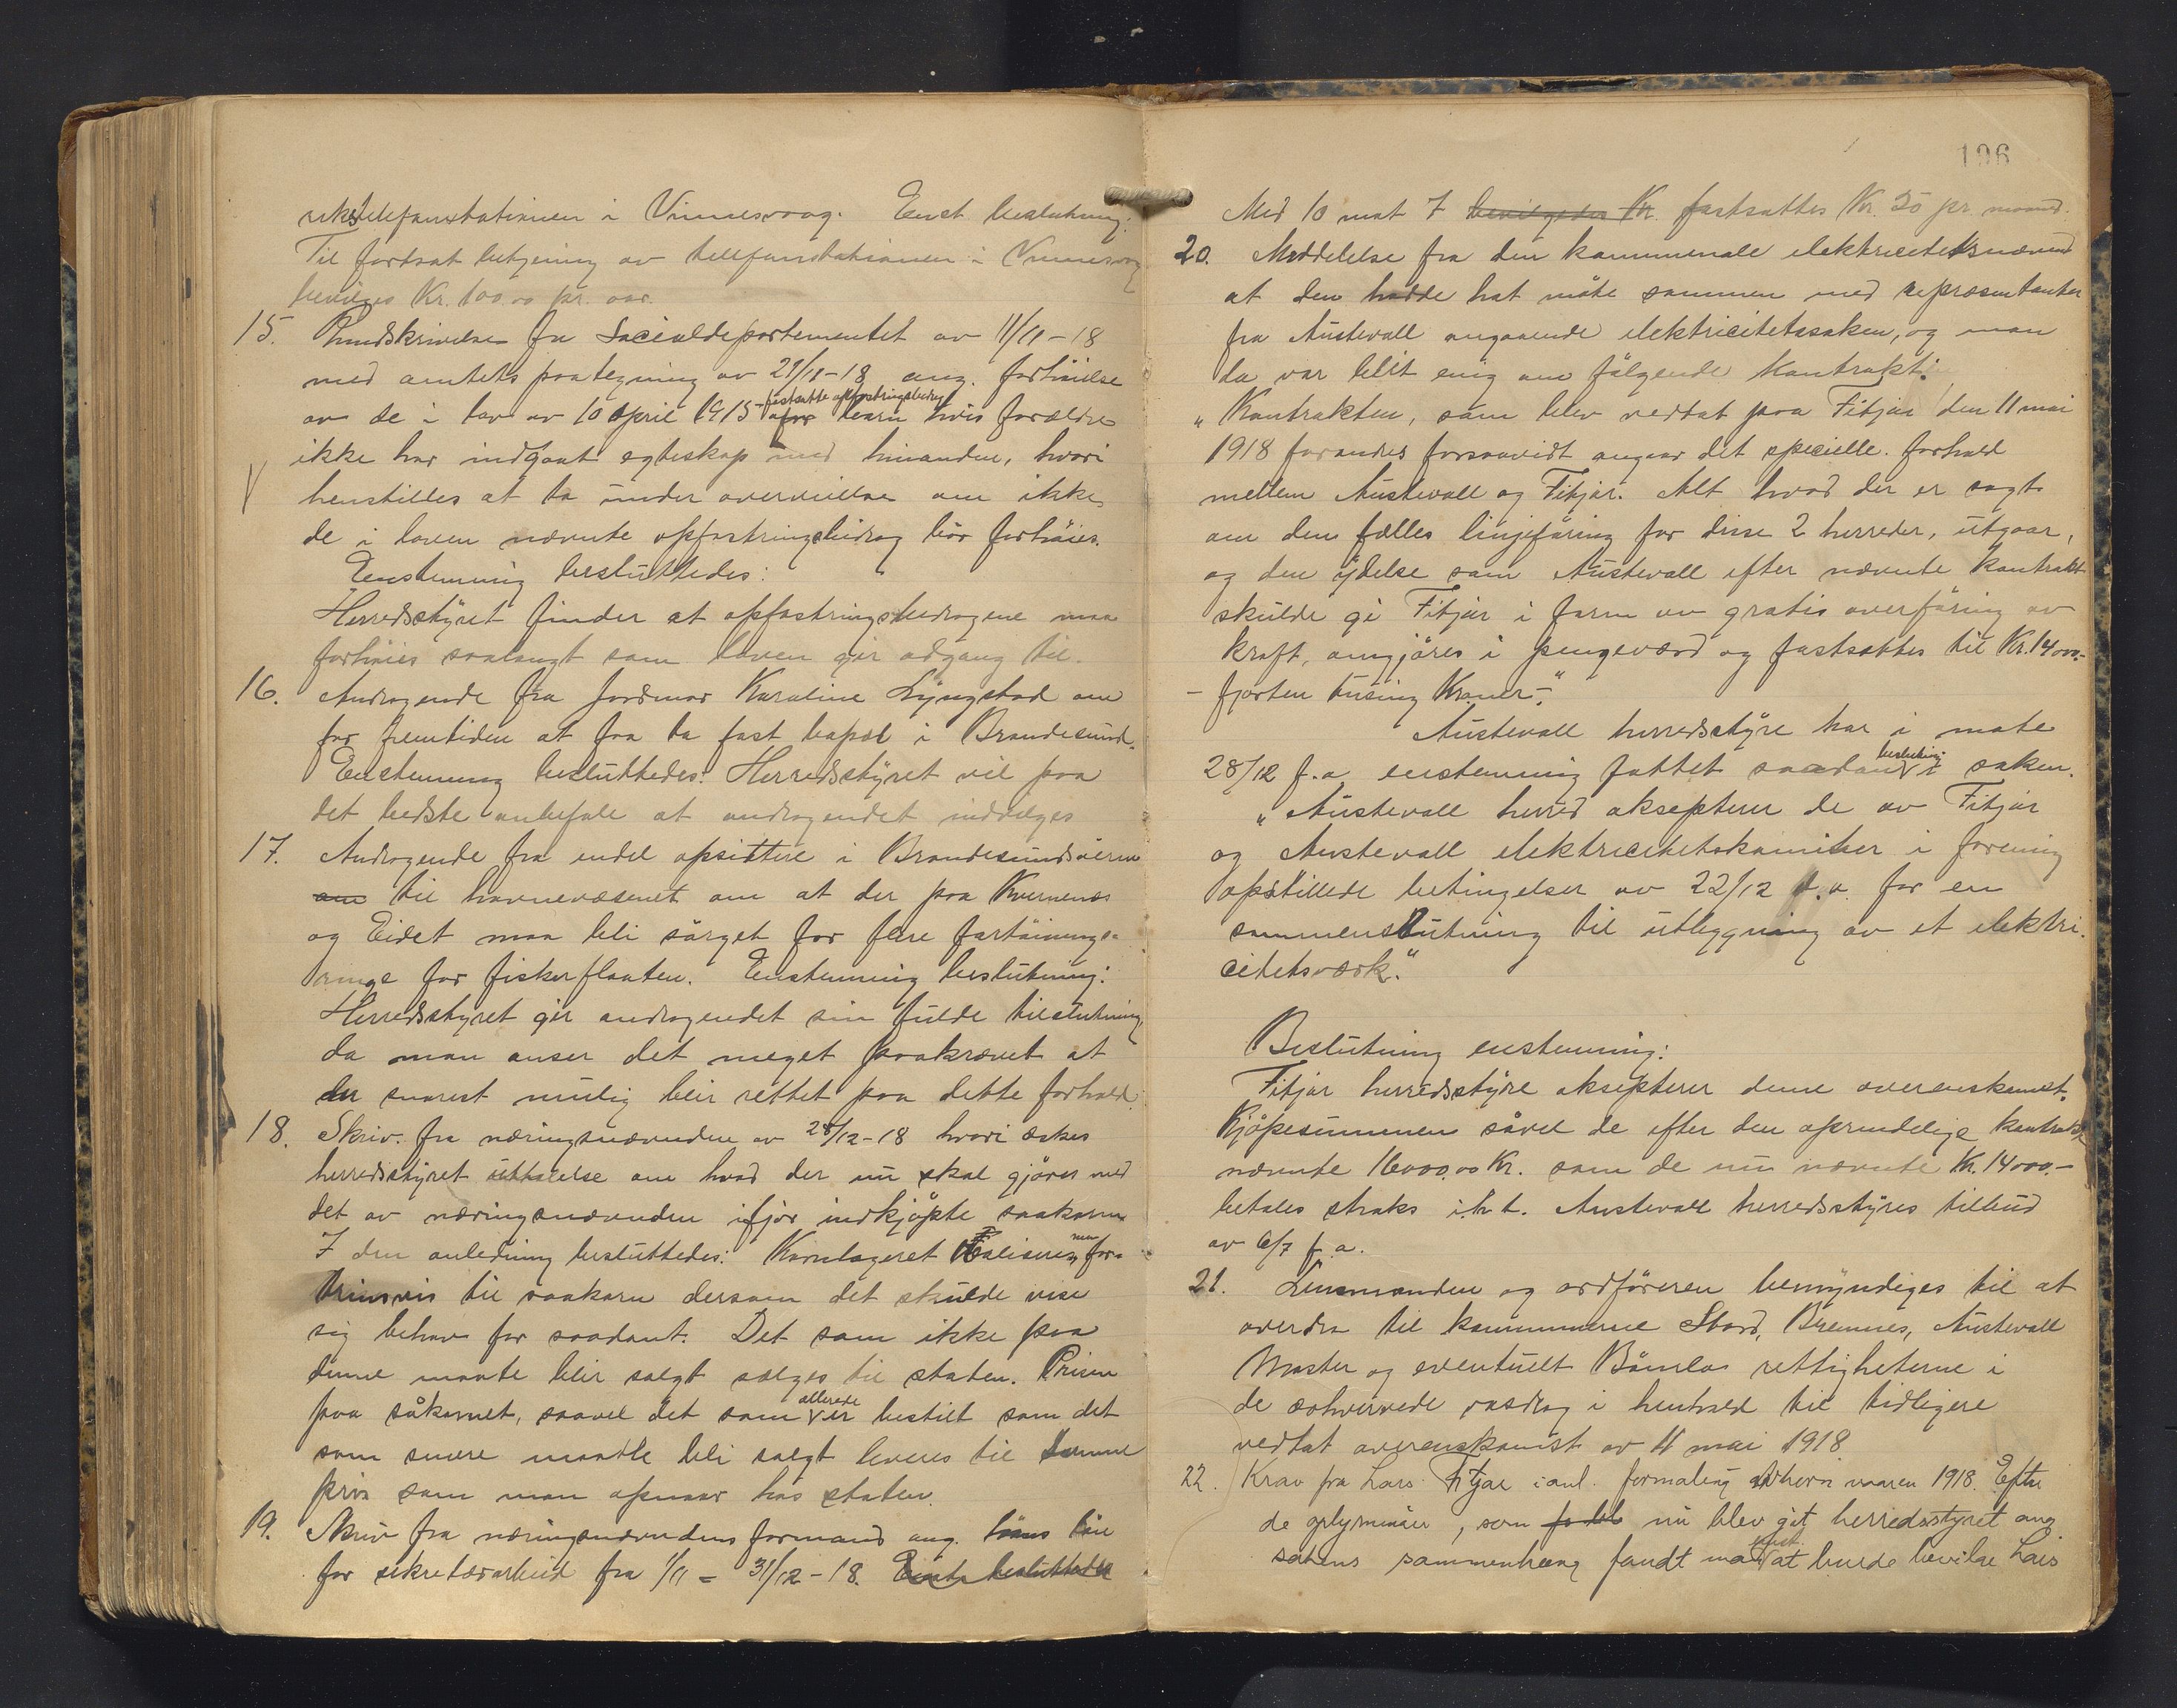 rikstelefonstationen i Vinnesvaag. Enst. beslutning:
Til fortsat betjening av telefonstationen i Vinnesvaag
bevilges Kr. 100.00 pr. aar.
15. Rundskrivelse fra Socialdepartementet av 11/11-18
med amtets paategning av 21/11-18 ang. forhöielse
av de i lov av 10 april 1915 fastsatte opfostringsbidrag for barn hvis forældre
ikke har indgaat egteskap med hinanden, hvori
henstilles at ta under overveielse om ikke
de i loven nævnte opfostringsbidrag bör forhöies.
Enstemmig besluttedes:
Herredsstyret finder at opfostringsbidragene maa
forhöies saalangt som loven gir adgang til.
16. Andragende fra jordmor Karoline Lyngstad om
for fremtiden at faa ta fast bopæl i Brandesund.
Enstemmig besluttedes: Herredsstyret vil paa
det bedste anbefale at andragendet inddvilges
17. Andragende fra endel opsittere i Brandesundsöerne
om til havnevæsenet om at der paa Kvernenes
og Eidet maa bli sörget for flere fortöinings-
ringe for fiskerflaaten. Enstemmig beslutning:
Herredsstyret gir andragendet sin fulde tilslutning,
da man anser det meget paakrævet at
der snarest mulig blir rettet paa dette forhold.
18. Skriv. fra næringsnævnden av 28/12-18 hvori æskes
herredsstyret uttalelse om hvad der nu skal gjöres med
det av næringsnævnden ifjor indkjöpte saakorn
I den anledning besluttedes: Kornlageret realiseres, men for-
trinsvis til saakorn dersom det skulde vise
sig behov for saadant. Det som ikke paa
denne maate blir solgt sælges til staten. Prisen
paa såkornet, saavel det som allerede er bestilt som det
som senere maatte bli solgt leveres til samme
pris som man opnaar hos staten.
19. Skriv fra næringsnævndens formand ang. löns lön
for sekretærarbeid fra 1/11 - 31/12-18. Enst. besluttedes
106
Med 10 mot 7 bevilgedes Kr. fastsattes Kr. 50 pr. maaned.
20. Meddelelse fra den kommunale elektricitetsnævnd
at den hadde hat möte sammen med repræsentanter
fra Austevoll angaaende elektricitetssaken, og man
da var blit enig om fölgende kontrakt:
"Kontrakten, som blev vedtat paa Fitjar den 11 mai
1918 forandres forsaavidt angaar det specielle forhold
mellem Austevoll og Fitjar. Alt hvad der er sagt
om den fælles linjeföring for disse 2 herreder, utgaar,
og den ydelse som Austevoll efter nævnte kontrakt
skulde gi Fitjar i form av gratis overföring av
kraft, omgjöres i pengeværd og fastsattes til Kr. 14000.-
- fjorten tusing Kroner-."
Austevoll herredsstyre har i möte
28/12 f.a. enstemmig fattet saadan beslutning i saken.
"Austevoll herred aksepterer de av Fitjar
og Austevoll elektricitetskomiteer i forening
opstillede betingelser av 22/12 d.a. for en
sammenslutning til utbygning av et elektri-
citetsverk."
Beslutning enstemmig:
Fitjar herredsstyre aksepterer denne overenskomst.
Kjöpesummen såvel de efter den oprindelige kontrakt
nævnte 16000.00 Kr. som de nu nævnte Kr. 14000.-
betales straks i.h.t. Austevoll herredsstyres tilbud
av 6/7 f.a.
21. Lensmanden og ordföreren bemyndiges til at
overdra til kommunerne Stord, Bremnes, Austevoll
Moster og eventuelt Bömlo rettigheterne i
de erhvervede vasdrag i henhold til tidligere
vedtat overenskomst av 11 mai 1918
22. Krav fra Lars Fitjar i anl. formaling av korn vaaren 1918. Efter
de oplysninger, som nu blev git herredsstyret ang
sakens sammenheng fandt man enst. at burde bevilge Lars